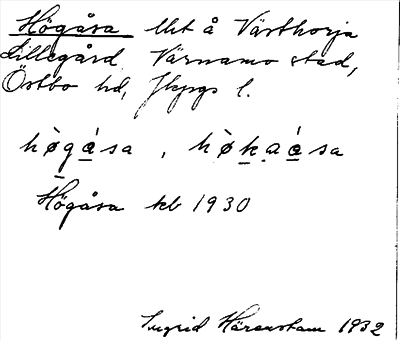 Högåsa lht å Västhorja
Lillegård Värnamo stad,
Östbo hd, Jkpgs l.
hògása , hø̀kaása
Högåsa kb 1930
Ingrid Härenstam 1932